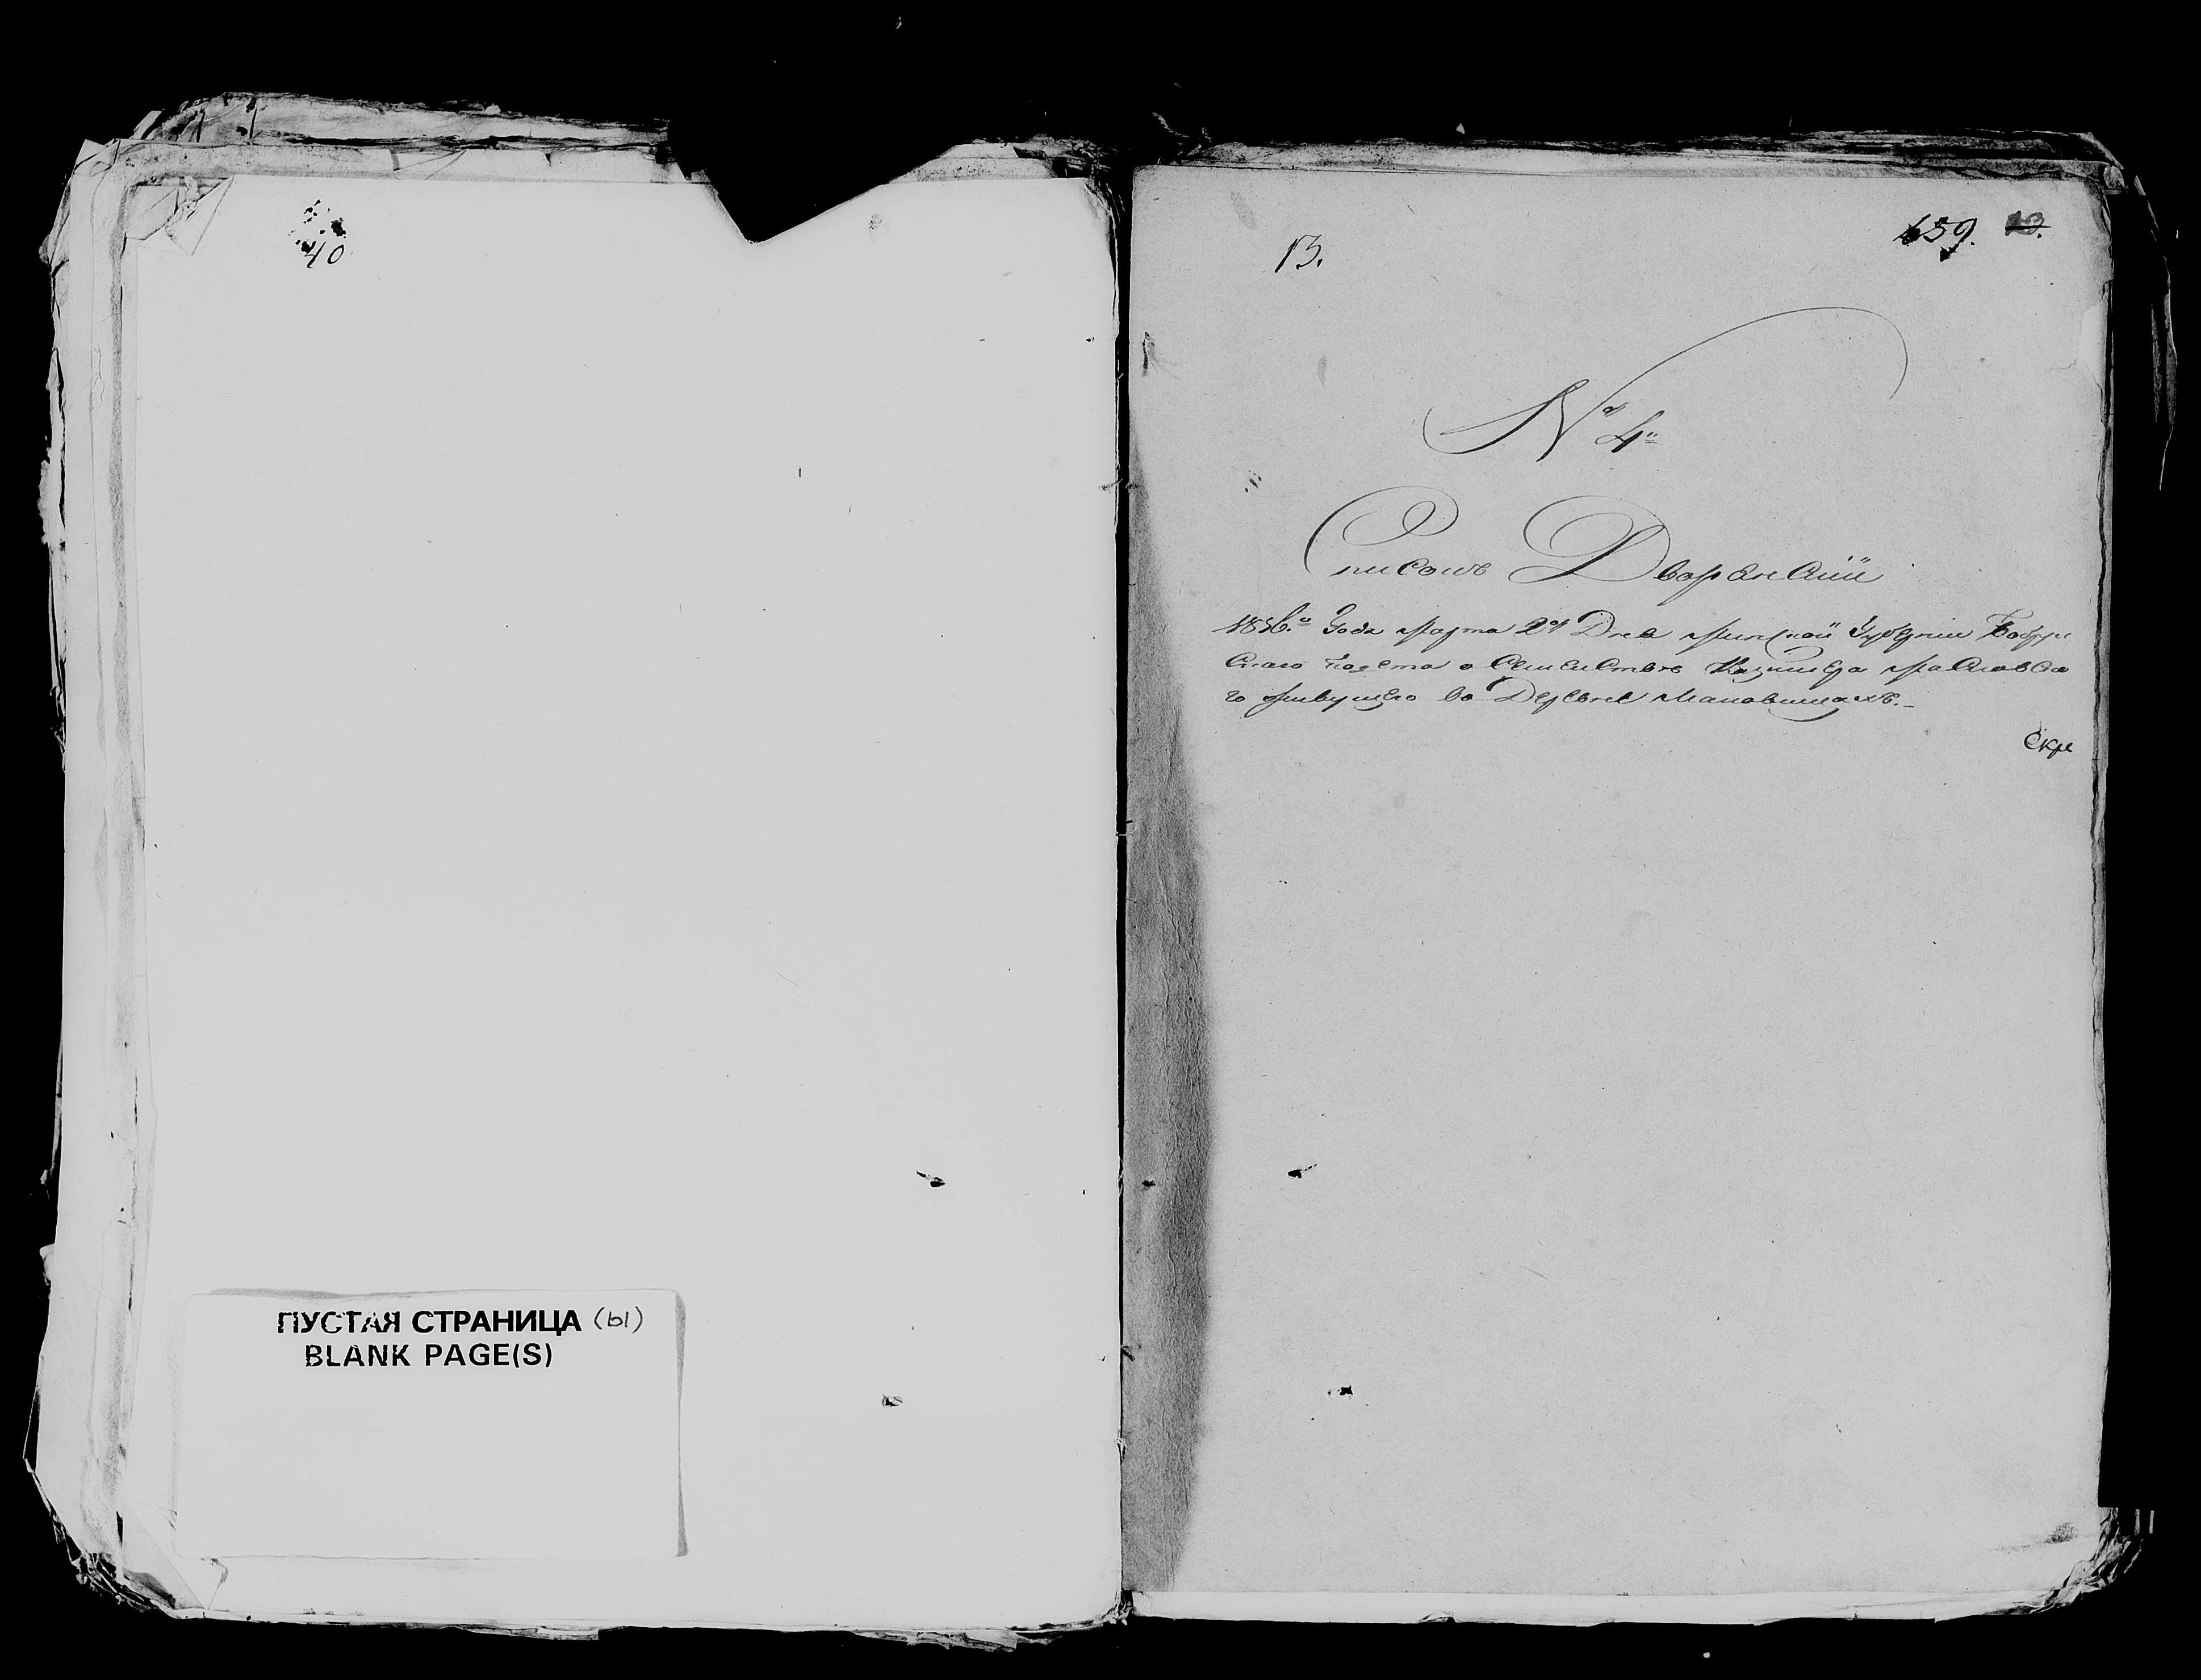 40
ПУСТАЯ СТРАНИЦА (ы)
BLANK PAGE(S)
13.
659. 13.
№ 4й
Списокъ Дворянскій
Года Марта 2го Дня Минской Губерніи Бобруй
скаго Повета о Семействе Казимера Масловска
го живущего во Деревне
Скре